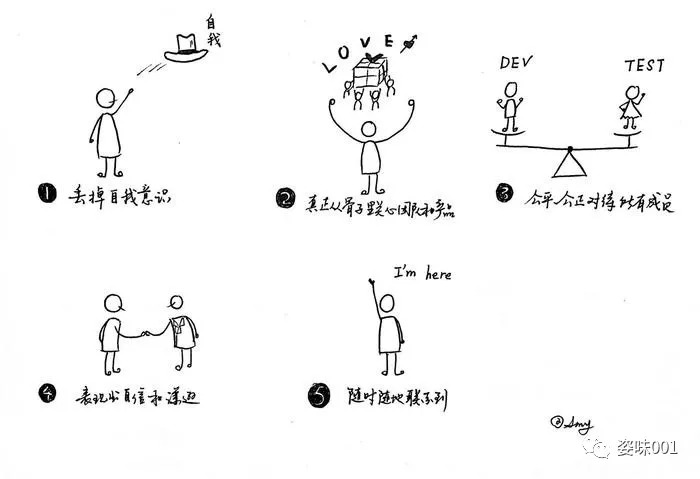 自我
❶ 丢掉自我意识
LOVE
❷ 真正从骨子里关心团队和产品
DEV
TEST
❸ 公平、公正对待所有成员
❹ 表现出自信和谦逊
I'm here
❺ 随时随地联系到
@Amy
姿味001